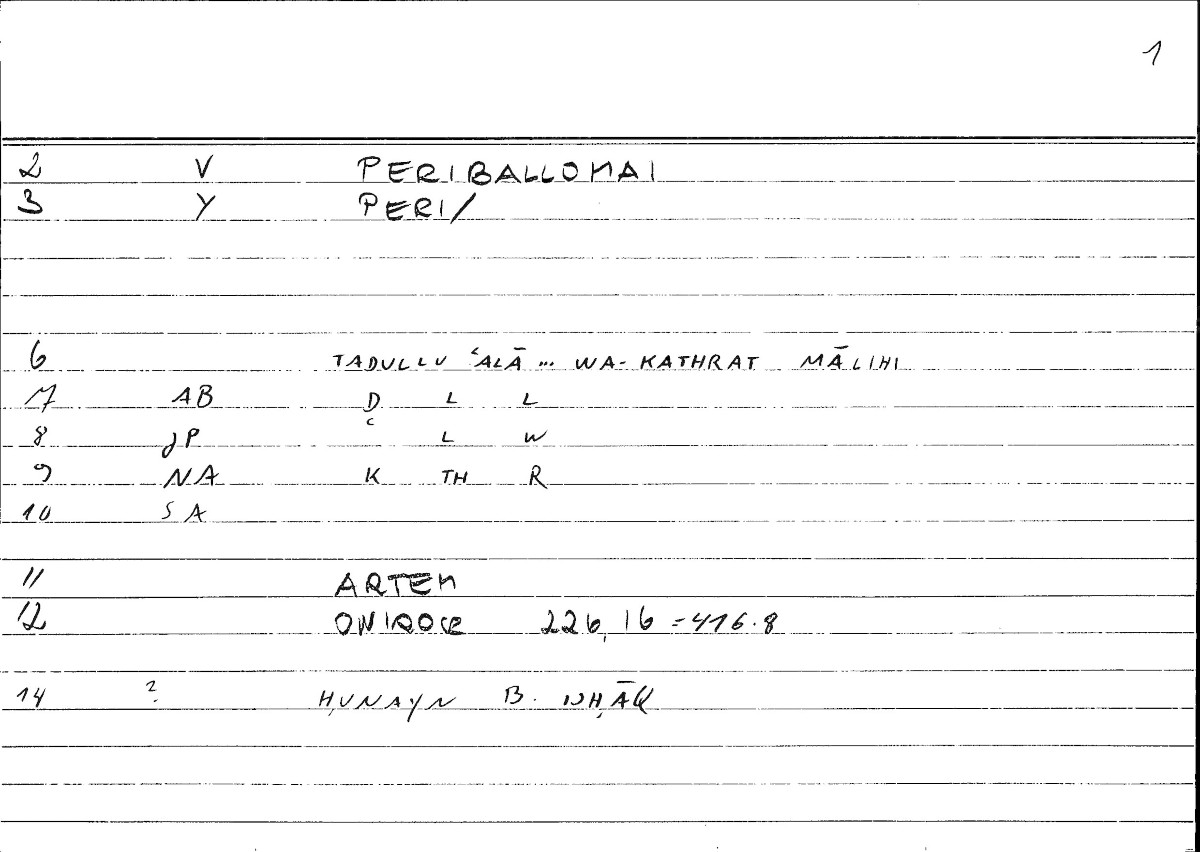 1
2 V PERIBALLOMAI
3 Y PERI/
6 TADULLU ʿALĀ ... WA-KATHRAT MĀLIHI
7 AB Ḍ L L
8 JP ʿ L W
9 NA K TH R
10 SA
11 ARTEM
12 ONIROCR 226,16 = 416.8
14 ? ḤUNAYN B. ISḤĀQ